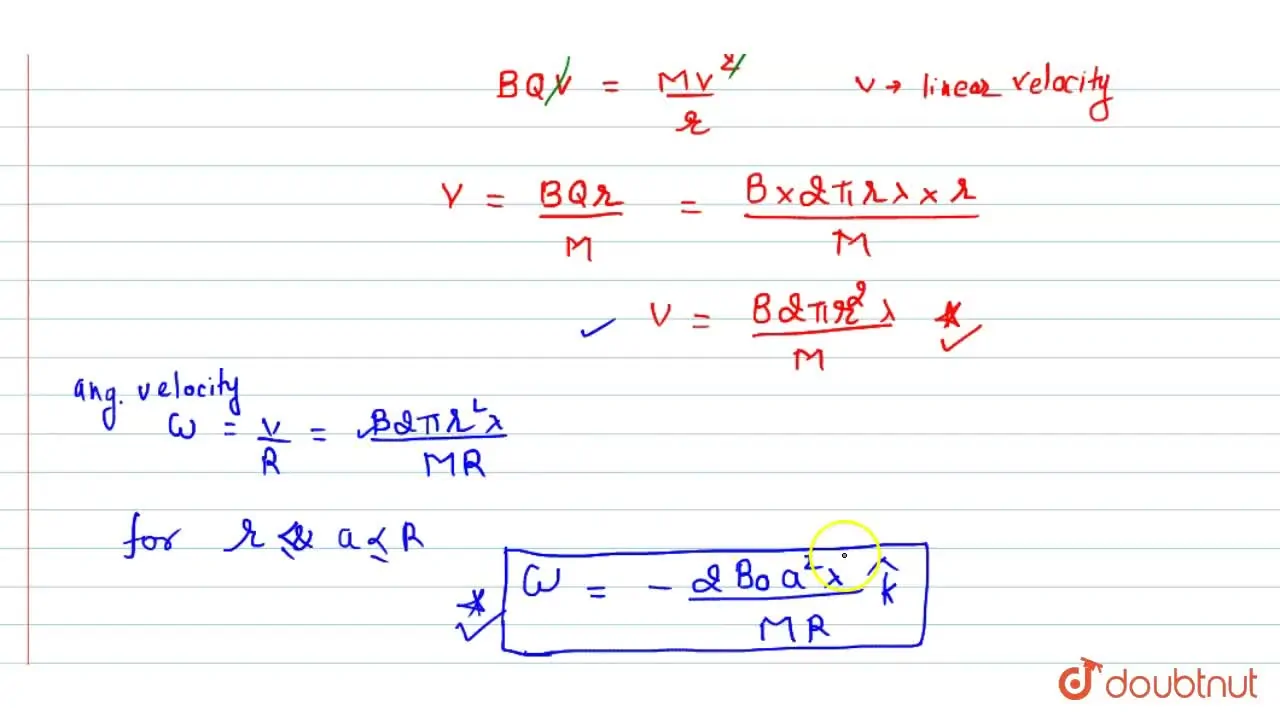 BQv = Mv²/r v → linear velocity
V = BQr/M = B×2πrλ×r/M
✓ V = B2πr²λ/M ★✓
ang. velocity
ω = v/R = B2πr²λ/MR
for r ≤ a ≤ R
★✓ ω = - 2B₀a²λ/MR k̂
doubtnut